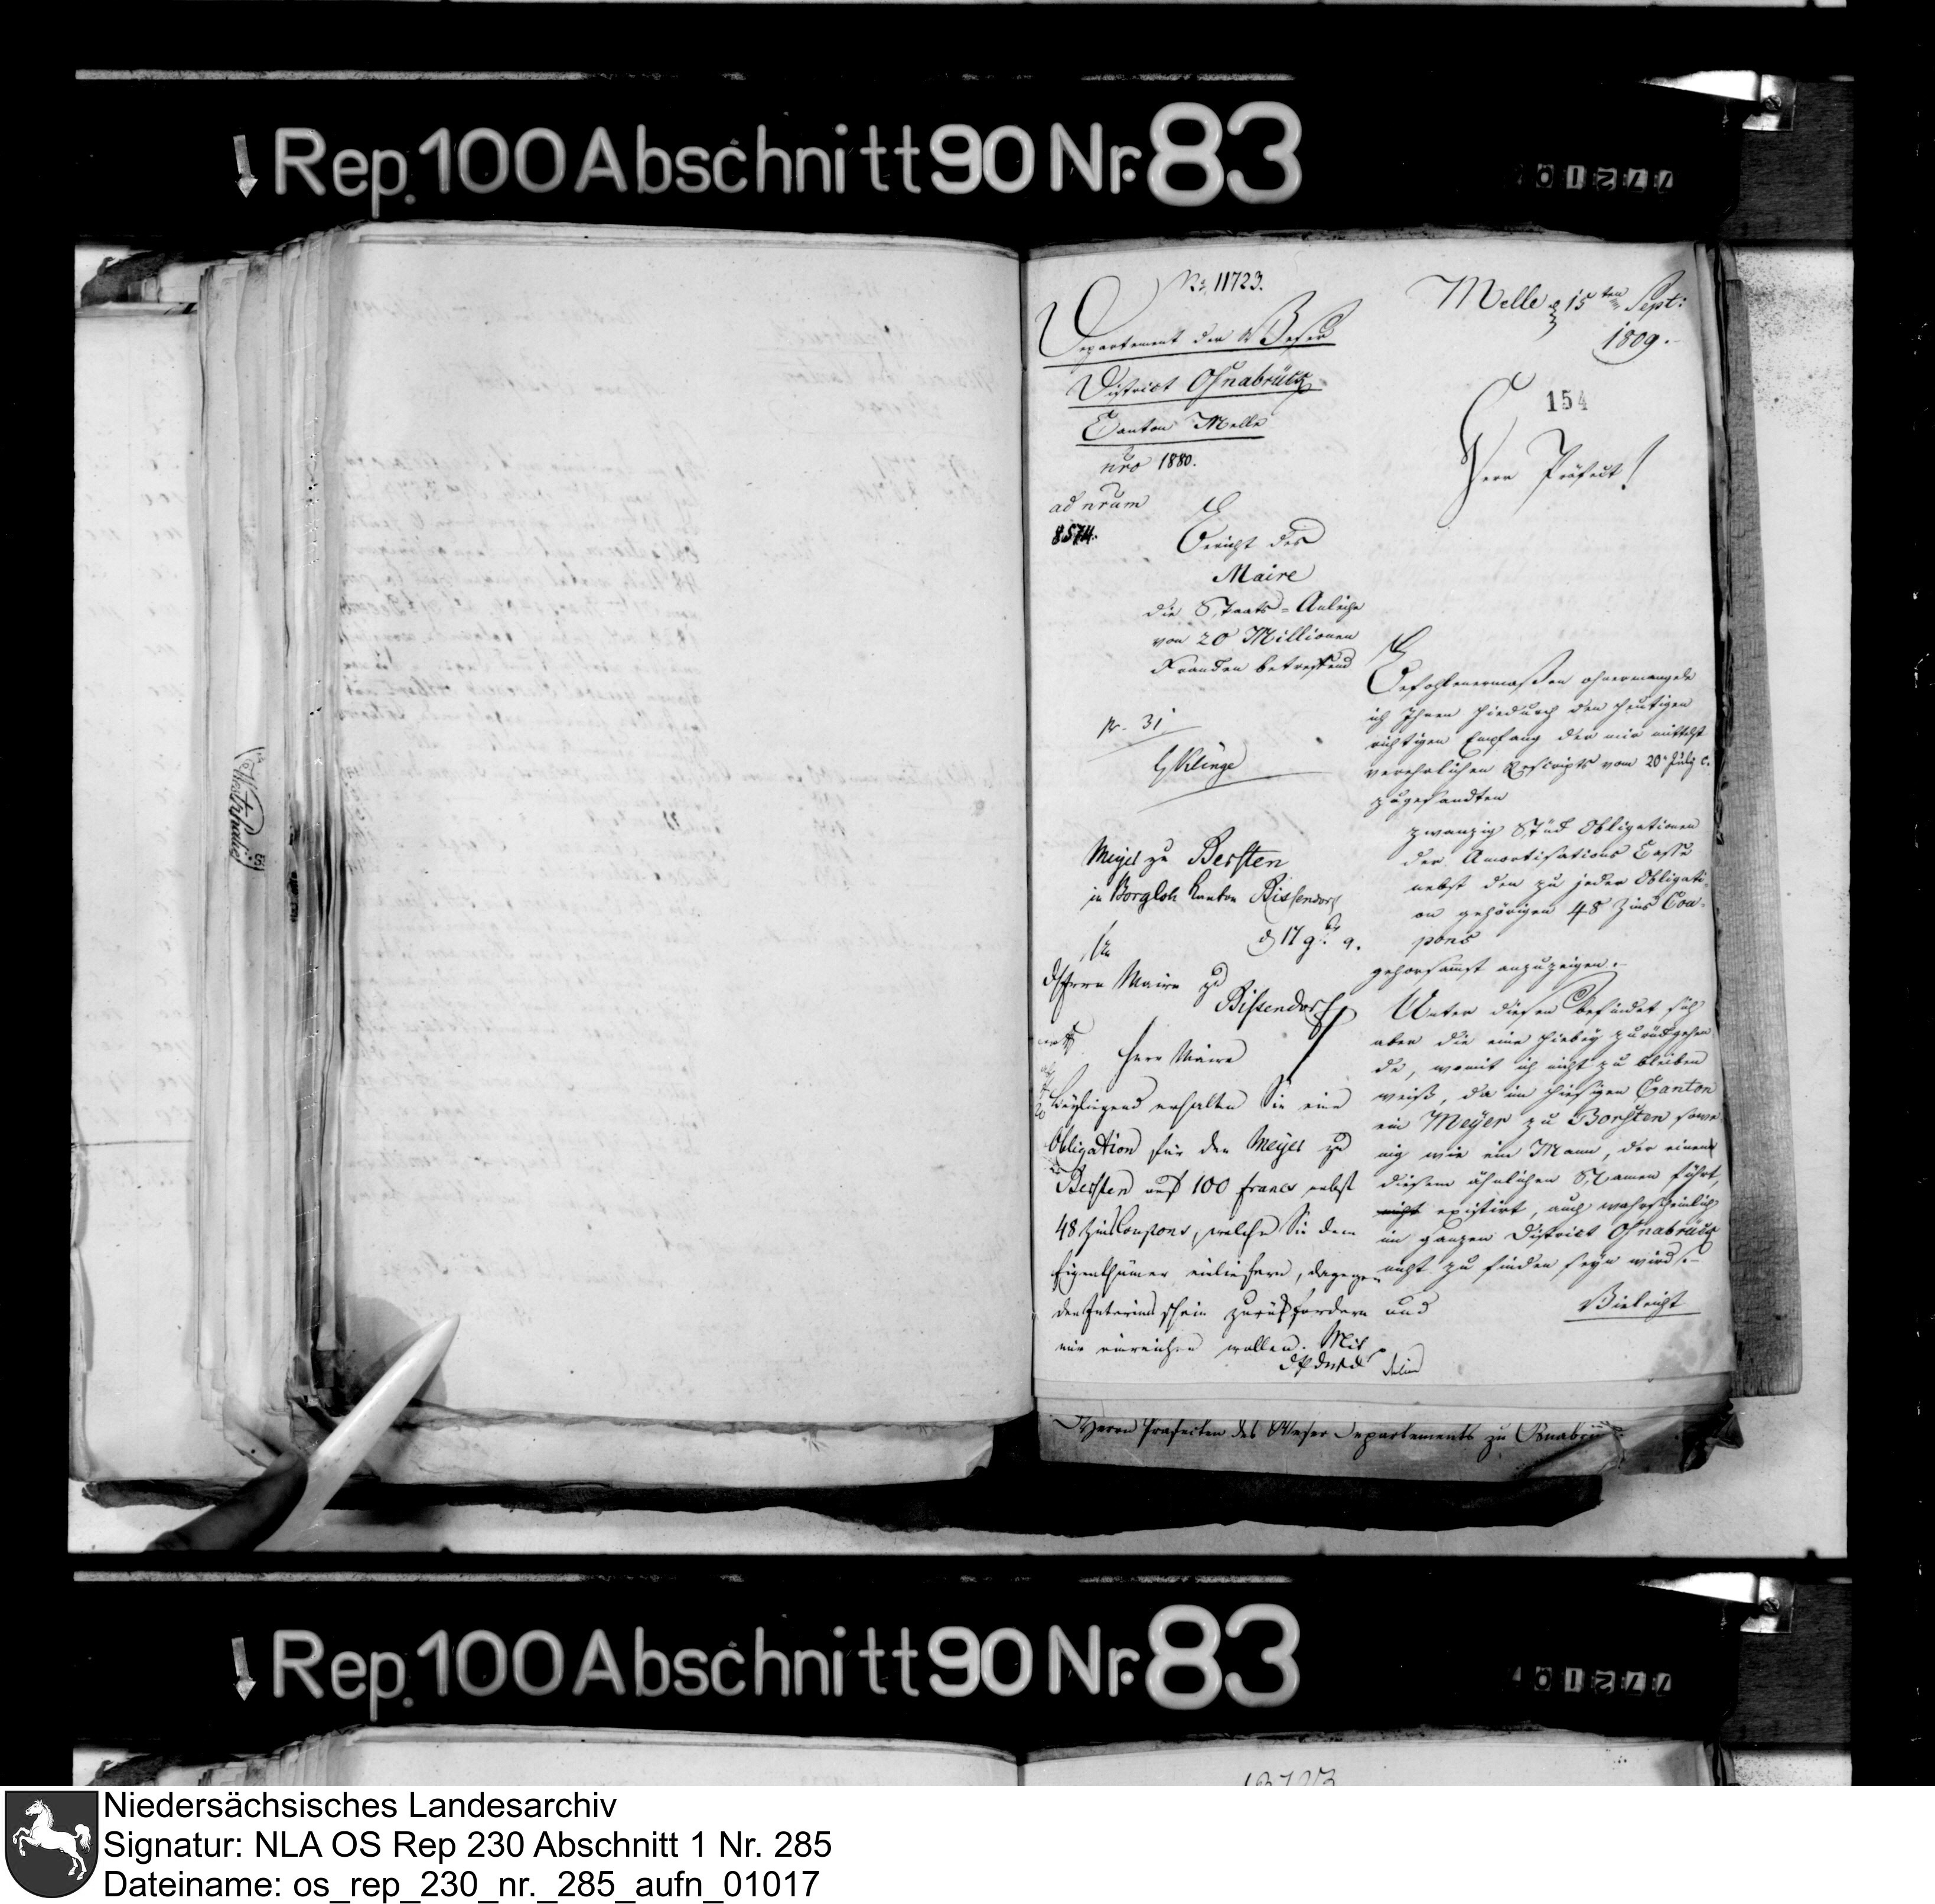 Rep. 100 Abschnitt 90 Nr. 83
No 11723.
Departement der Weser
District Osnabrück
Canton Melle
nro 1880.
ad nrum
8574.
Bericht des
Maire
die Staats-Anleihe
von 20 Millionen
Franken betreffend
Melle 15ten Sept:
1809.
154
Herr Präfect!
Befohlenermaßen ohnermangele
ich Ihnen hiedurch den heutigen
richtigen Empfang der mir mittelst
verehrlichen Rescripts vom 20. July c.
zugesandten
zwanzig Stück Obligationen
der Amortisations Casse
nebst den zu jeder Obligati-
on gehörigen 48 Zins Cou-
pons
gehorsamst anzuzeigen.
Unter diesen befindet sich
aber die eine hiebey zurückgehen-
de, womit ich nicht zu bleiben
weiß, da im hiesigen Canton
ein Meyer zu Borsten sowe-
nig wie ein Mann, der einen
diesem ähnlichen Namen führt,
nicht existirt, auch wahrscheinlich
im ganzen District Osnabrück
nicht zu finden seyn wird.
Vieleicht
pr. 31
Klinge
Meyer zu Bersten
in Borgloh Kanton Bissendorf
d 17 9br 9.
An
d Herrn Maire zu
Bissendorf
Herr Maire
Beyliegend erhalten Sie eine
Obligation für den Meyer zu
Bersten auf 100 francs nebst
48 Zins Coupons, welche Sie dem
Eigenthümer einliefern, dagegen
den Interims schein zurückfordern und
mir einreichen wollen. Mit
Herrn Praefecten des Weser Departements zu Osnabrück
Rep. 100 Abschnitt 90 Nr. 83
Niedersächsisches Landesarchiv
Signatur: NLA OS Rep 230 Abschnitt 1 Nr. 285
Dateiname: os_rep_230_nr._285_aufn_01017